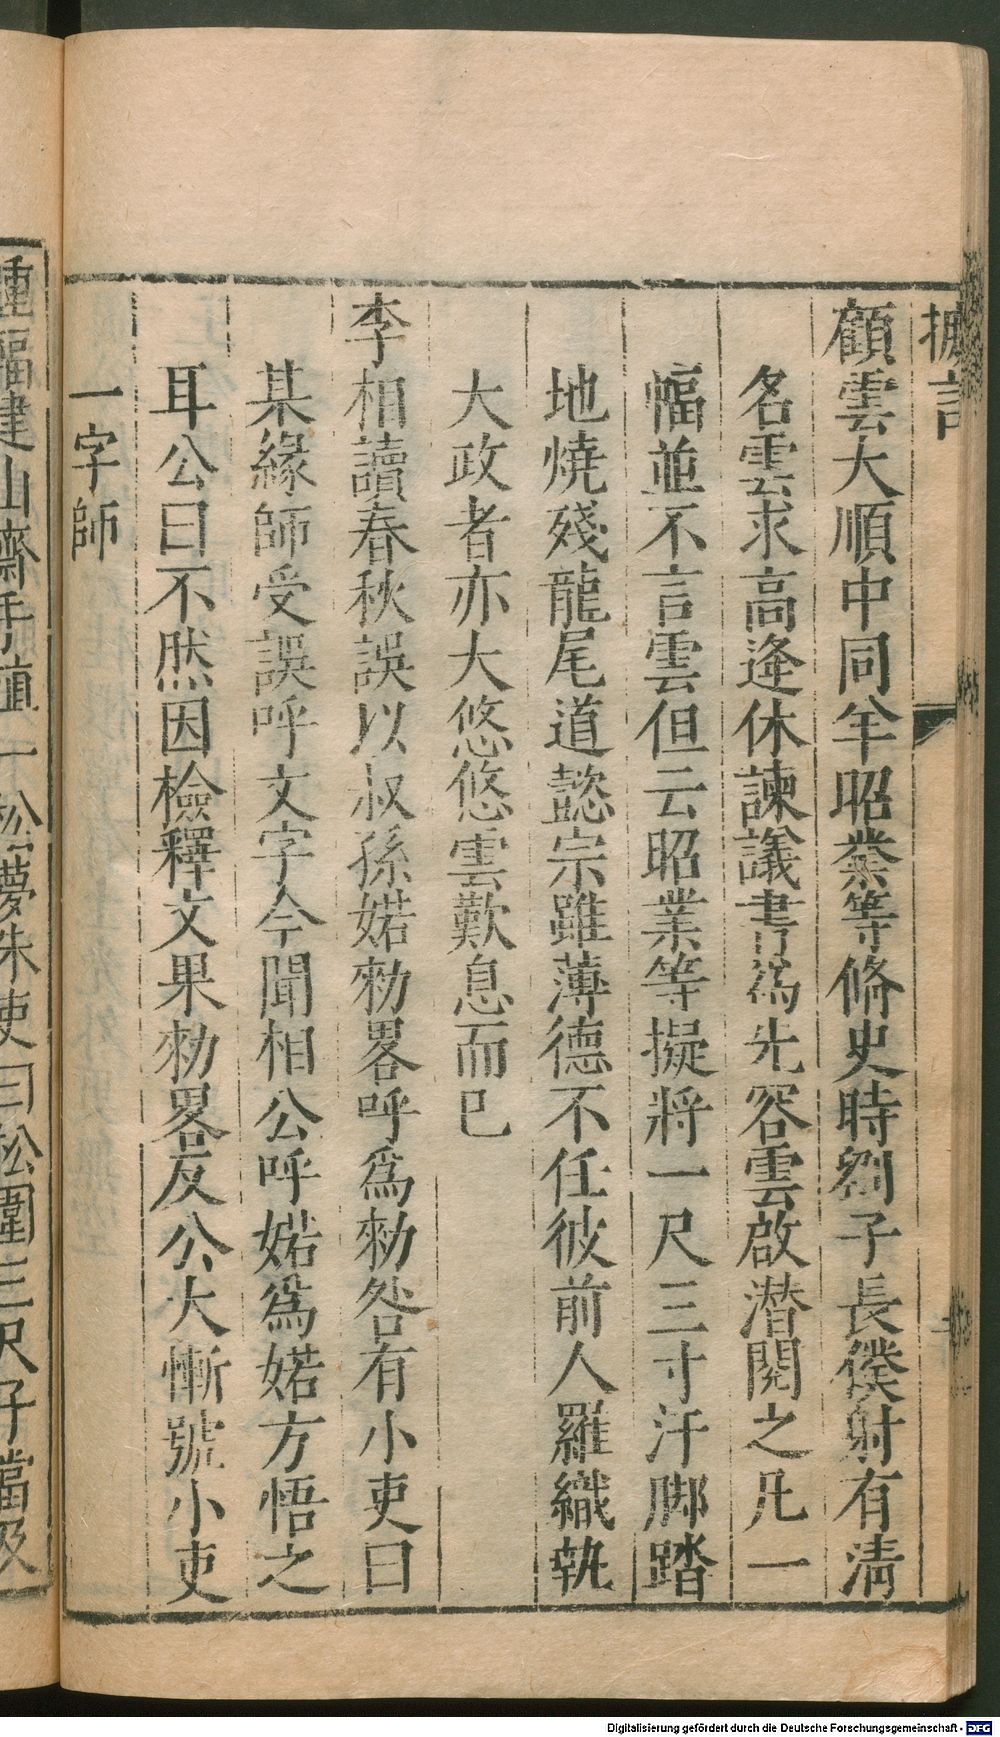 摭言
顧雲大順中同羊昭業等脩史時劉子長僕射有淸
名雲求高逢休諫議書爲先容雲啟潛閱之凡一
幅並不言雲但云昭業等擬將一尺三寸汗脚踏
地燒殘龍尾道懿宗雖薄德不任彼前人羅織執
大政者亦大悠悠雲歎息而已
李相讀春秋誤以叔孫婼勑畧呼爲勑咎有小吏曰
某緣師受誤呼文字今聞相公呼婼爲婼方悟之
耳公曰不然因檢釋文果勑畧反公大慚號小吏
一字師
建山齋手植一松夢朱吏曰松圍三尺子當及
Digitalisierung gefördert durch die Deutsche Forschungsgemeinschaft - DFG